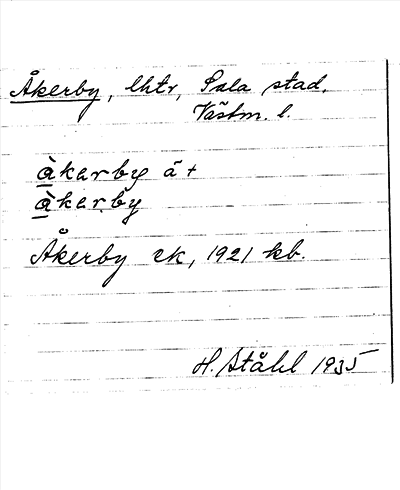 Åkerby, lhtr, Sala stad.
Västm. l.
å̀kerby ä+
å̀kerby
Åkerby ek, 1921 kb.
H. Ståhl 1935